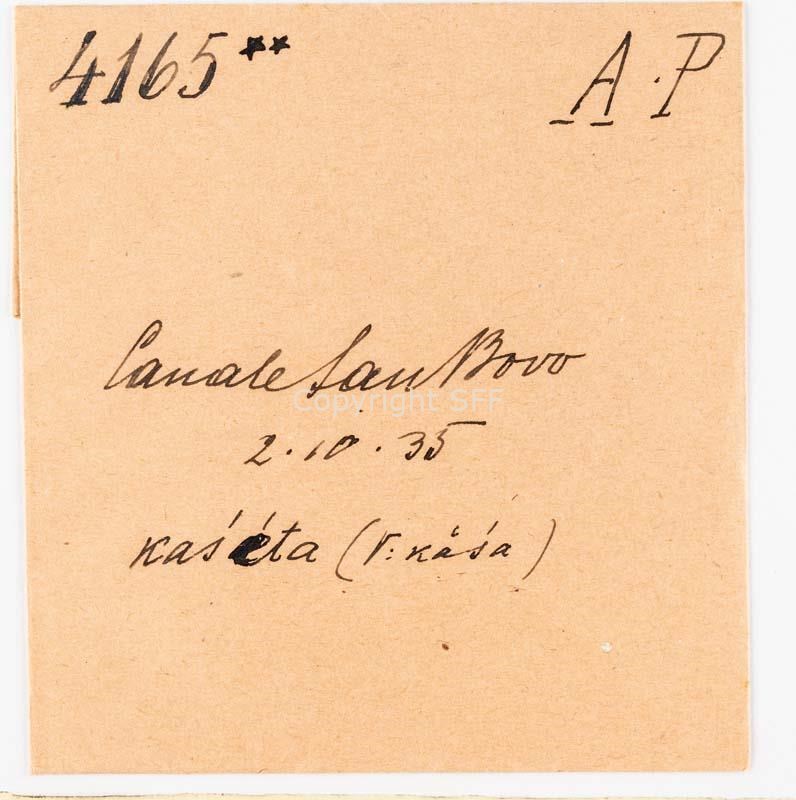 4165** A.P
Canale San Bovo
Copyright SFF
2.10.35
kaśéta (V: kåśa)